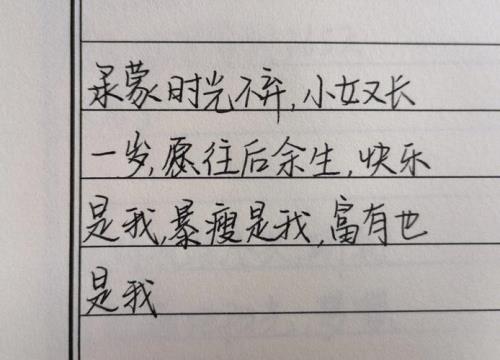 承蒙时光不弃,小女又长
一岁,愿往后余生,快乐
是我,暴瘦是我,富有也
是我